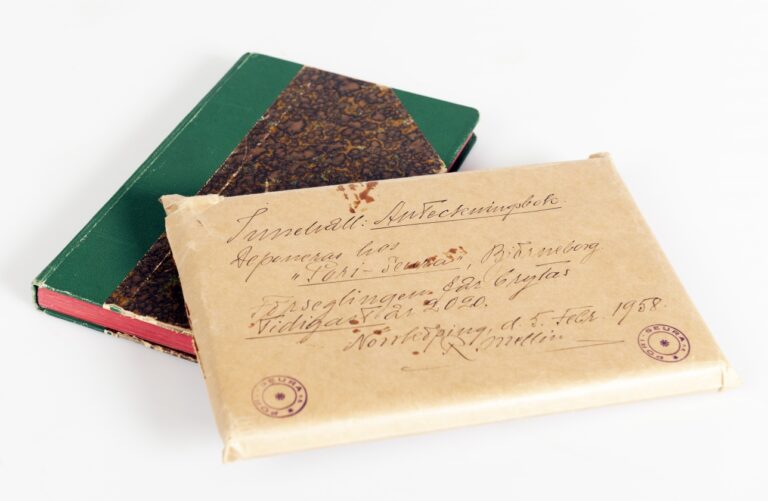 Innehåll: Anteckningsbok.
Deponeras hos
"Pori-Seura", Björneborg.
Förseglingen får brytas
tidigast år 2020.
Norrköping, d. 5. Febr. 1958.
Mellin
PORI-SEURA
PORI-SEURA